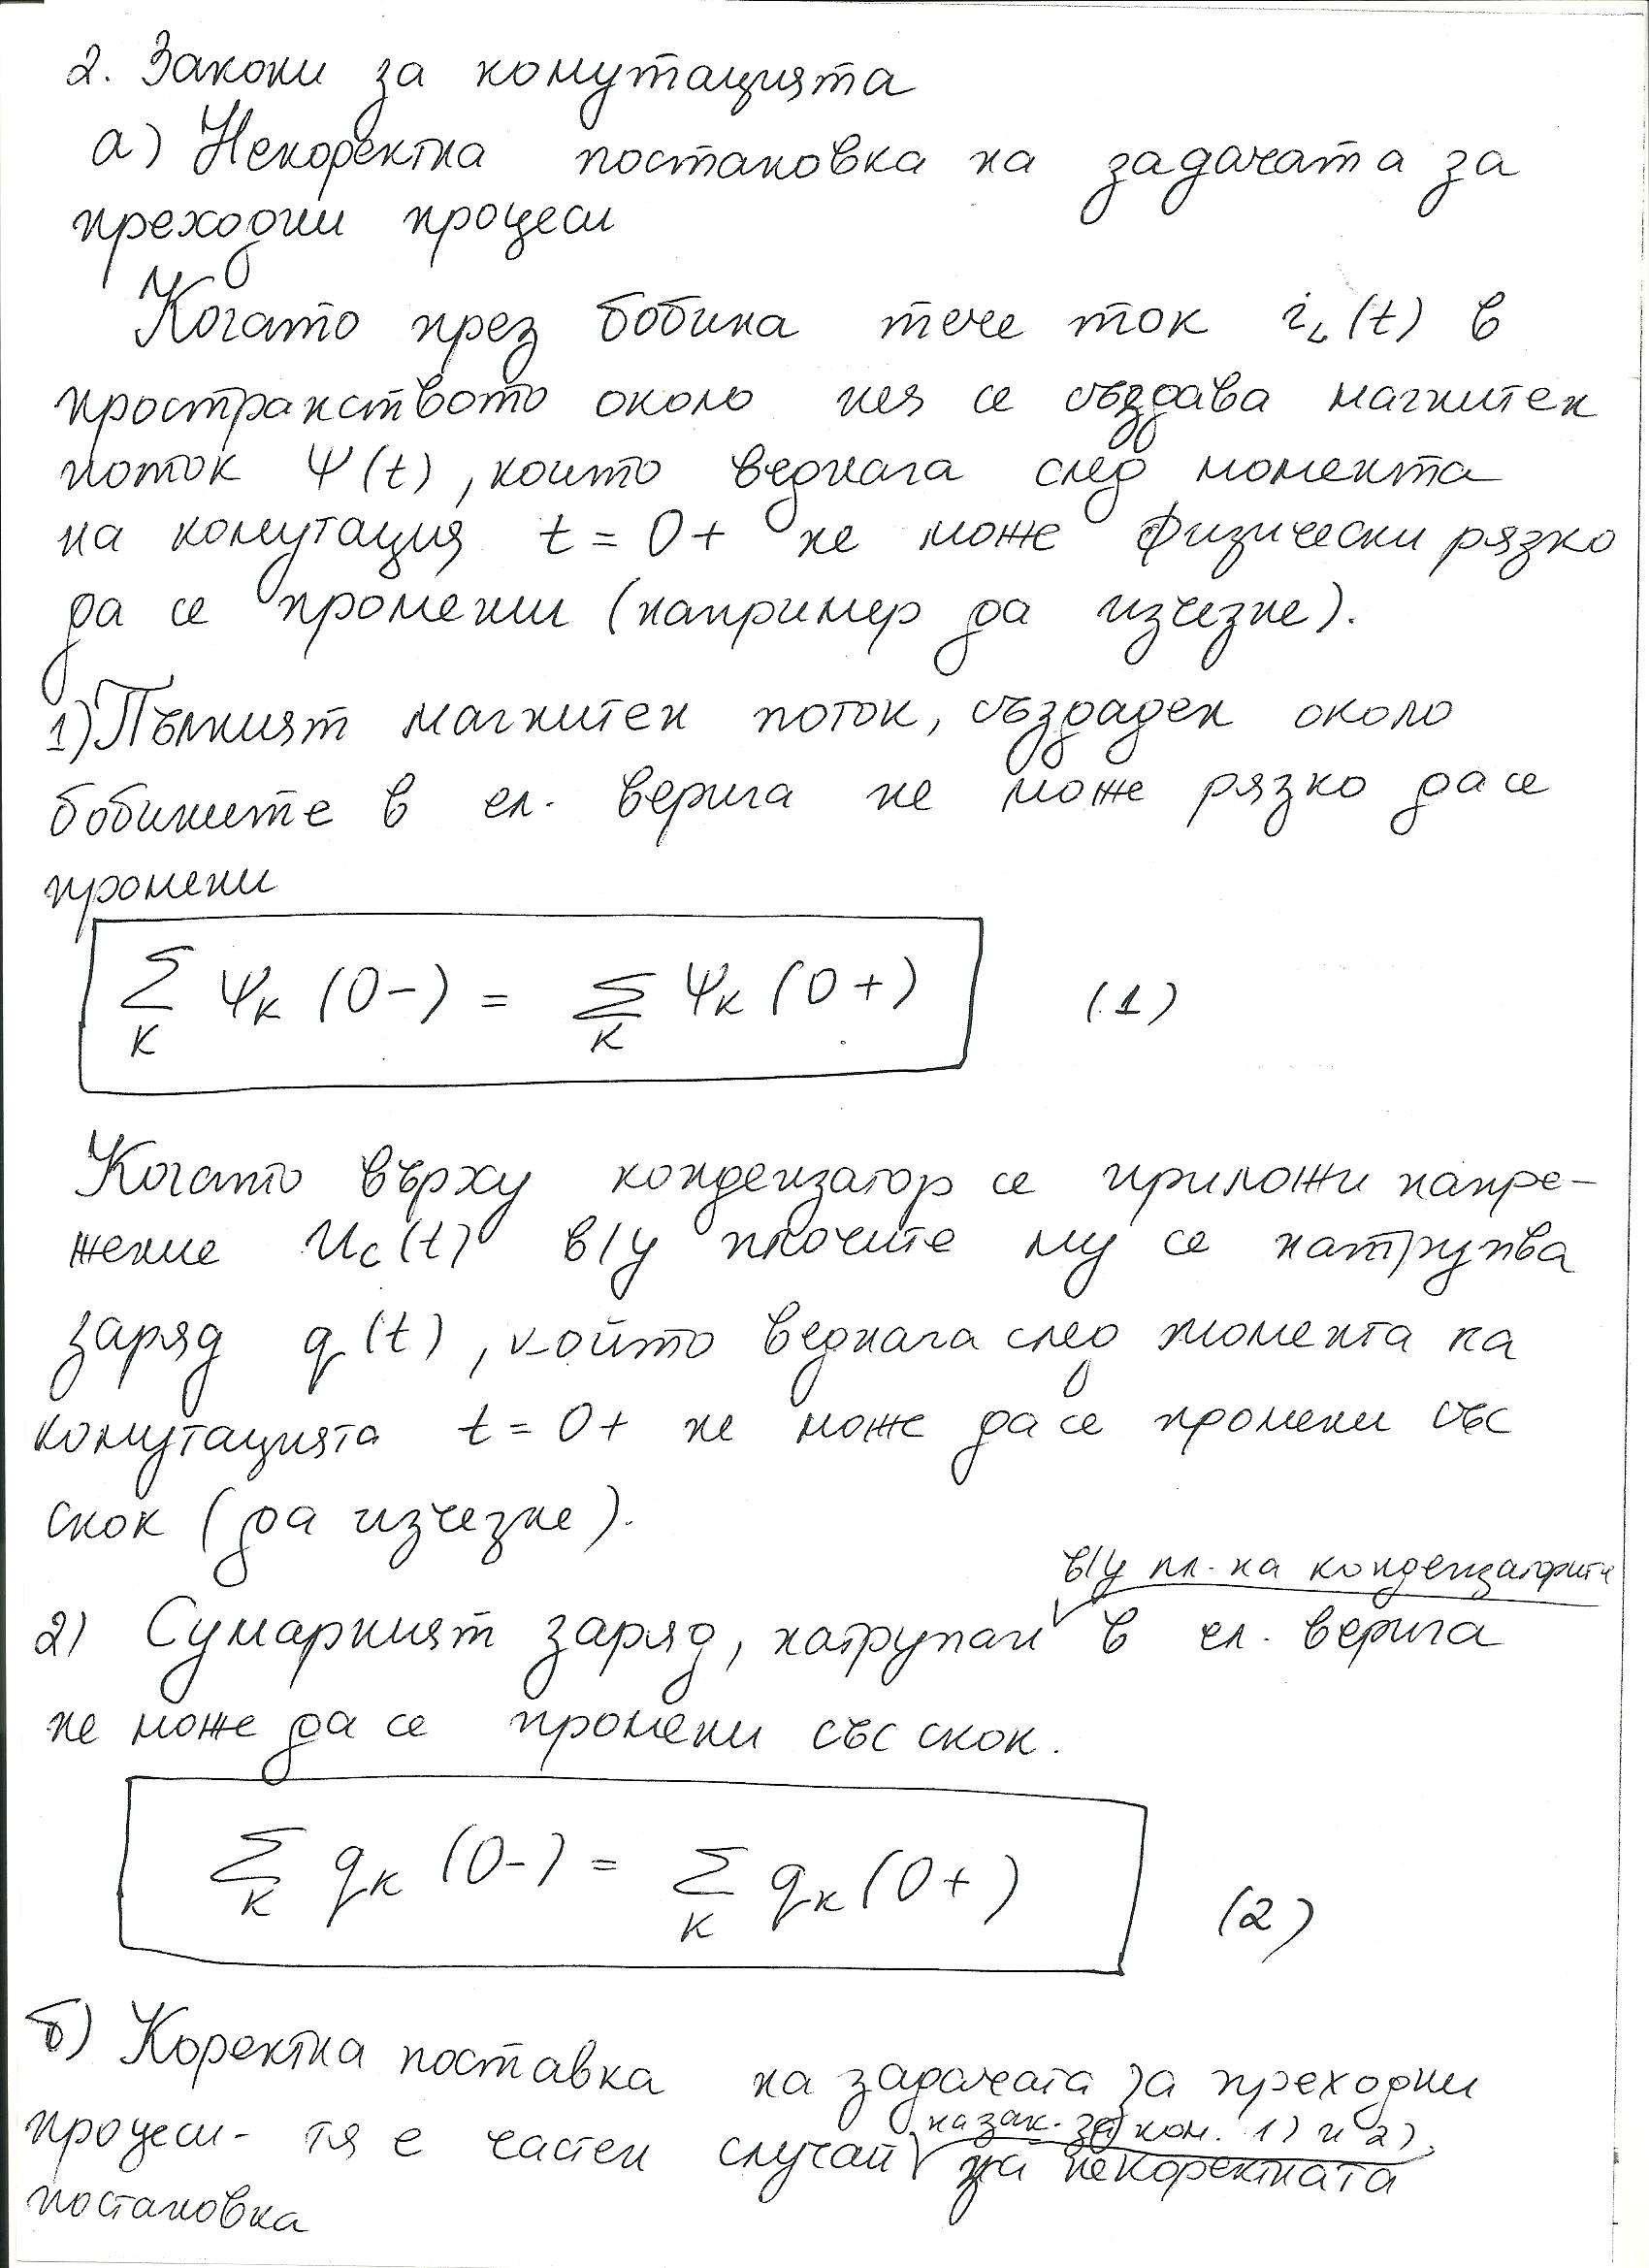 2. Закони за комутацията
а) Некоректна постановка на задачата за
преходни процеси
Когато през бобина тече ток i_L(t) в
пространството около нея се създава магнитен
поток Ψ(t), който веднага след момента
на комутация t = 0+ не може физически рязко
да се промени (например да изчезне).
1) Пълният магнитен поток, създаден около
бобините в ел. верига не може рязко да се
промени
Σ_K Ψ_K (0-) = Σ_K Ψ_K (0+) (1)
Когато върху кондензатор се приложи напре-
жение u_C(t) в/у плочите му се натрупва
заряд q(t), който веднага след момента на
комутацията t = 0+ не може да се промени със
скок (да изчезне).
в/у пл. на кондензаторите
2) Сумарният заряд, натрупан в ел. верига
не може да се промени със скок.
Σ_K q_K (0-) = Σ_K q_K (0+) (2)
б) Коректна поставка на задачата за преходни
на зак. за ком. 1) и 2)
процеси - тя е частен случай на некоректната
постановка